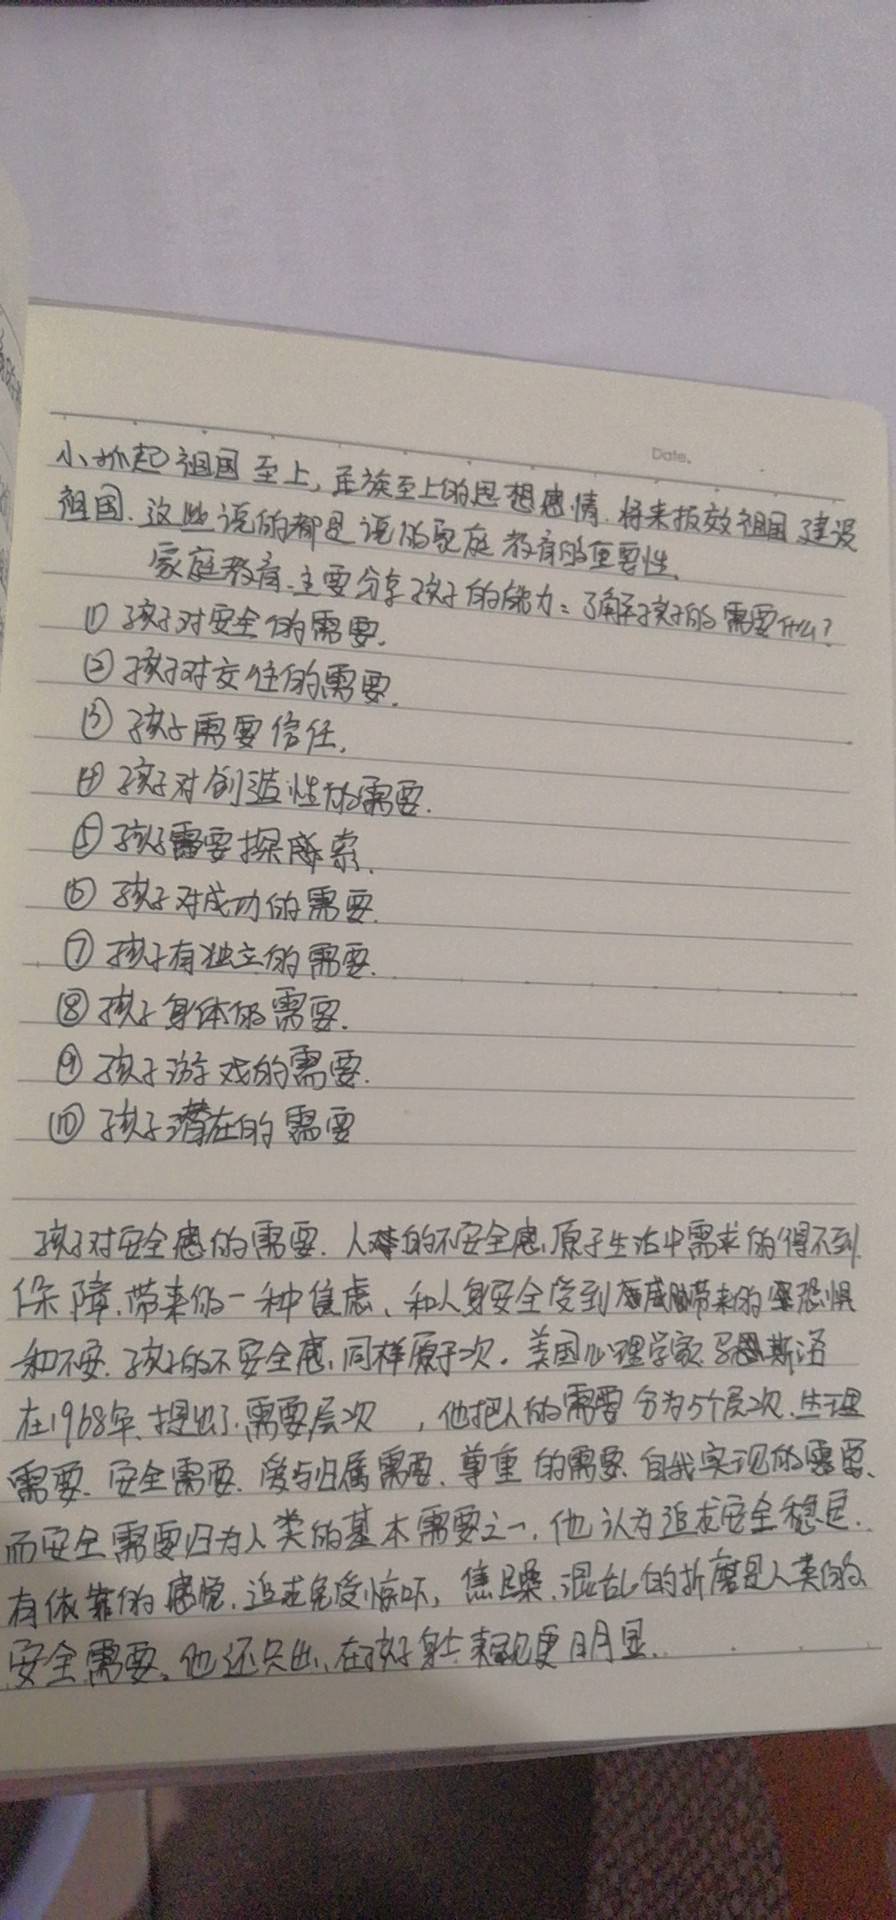 Date.
小抓起祖国至上,民族至上的思想感情.将来报效祖国,建设
祖国.这些说的都是说的家庭教育的重要性.
家庭教育.主要分享孩子的能力:了解孩子的需要什么?
① 孩子对安全的需要.
② 孩子对交往的需要.
③ 孩子需要信任.
④ 孩子对创造性的需要.
⑤ 孩子需要探索.
⑥ 孩子对成功的需要.
⑦ 孩子有独立的需要.
⑧ 孩子身体的需要.
⑨ 孩子游戏的需要.
⑩ 孩子潜在的需要
孩子对安全感的需要.人类的不安全感,原于生活中需求的得不到
保障,带来的一种焦虑、和人身安全受到威胁带来的恐惧
和不安.孩子的不安全感,同样原于次.美国心理学家马斯洛
在1968年,提出了需要层次,他把人的需要分为5个层次.生理
需要.安全需要.爱与归属需要.尊重的需要.自我实现的需要.
而安全需要归为人类的基本需要之一.他认为追求安全稳定.
有依靠的感觉.追求免受惊吓,焦躁.混乱的折磨是人类的
安全需要。他还只出,在孩子身上表现更明显.